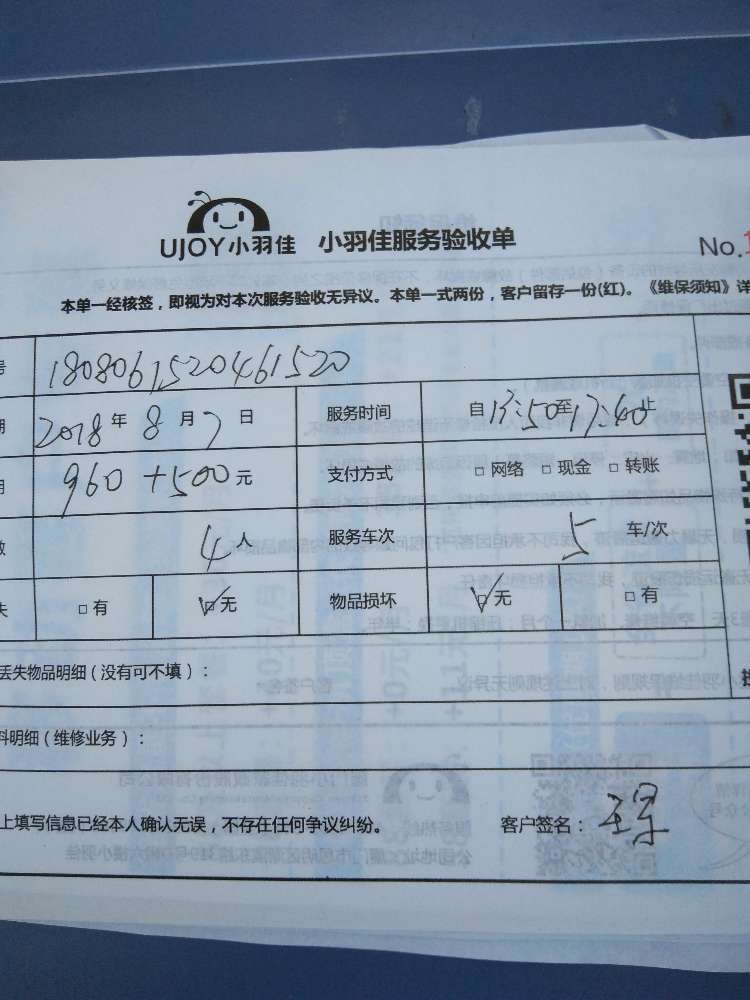 UJOY小羽佳 小羽佳服务验收单
No.1
本单一经核签，即视为对本次服务验收无异议。本单一式两份，客户留存一份(红)。《维保须知》详
号 1808061520461520
期 2018年8月7日 服务时间 自13:50至17:40止
用 960+500元 支付方式 □网络 □现金 □转账
数 4人 服务车次 5 车/次
失 □有 ☑无 物品损坏 ☑无 □有
丢失物品明细（没有可不填）：
料明细（维修业务）：
上填写信息已经本人确认无误，不存在任何争议纠纷。 客户签名：